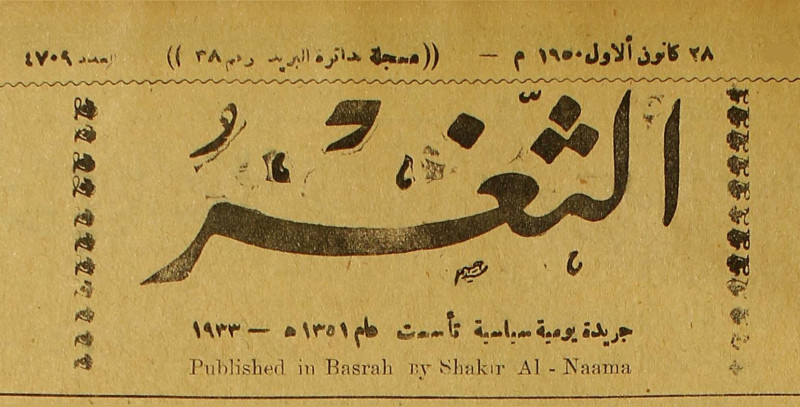 ٢٨ كانون الاول ١٩٥٠ م — ((مسجلة بدائرة البريد رقم ٣٨)) العدد ٤٧٠٩
الثغر
جريدة يومية سياسية تأسست عام ١٣٥١ ه — ١٩٣٣
Published in Basrah By Shakir Al - Naama